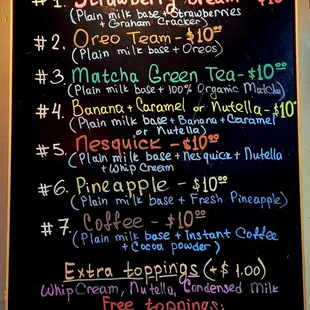 #1. Strawberry Dream - $10
(Plain milk base + Strawberries
+ Graham Cracker)
#2. Oreo Team - $10.00
(Plain milk base + Oreos)
#3 Matcha Green Tea - $10.00
(Plain milk base + 100% Organic Matcha)
#4. Banana + Caramel or Nutella - $10
(Plain milk base + Banana + Caramel
or Nutella)
#5. Nesquick - $10.00
(Plain milk base + Nesquick + Nutella
+ Whip Cream
#6. Pineapple - $10.00
(Plain milk base + Fresh Pineapple)
#7. Coffee - $10.00
(Plain milk base + Instant Coffee
+ Cocoa powder)
Extra toppings (+ $1.00)
Whip Cream, Nutella, Condensed Milk
Free toppings: